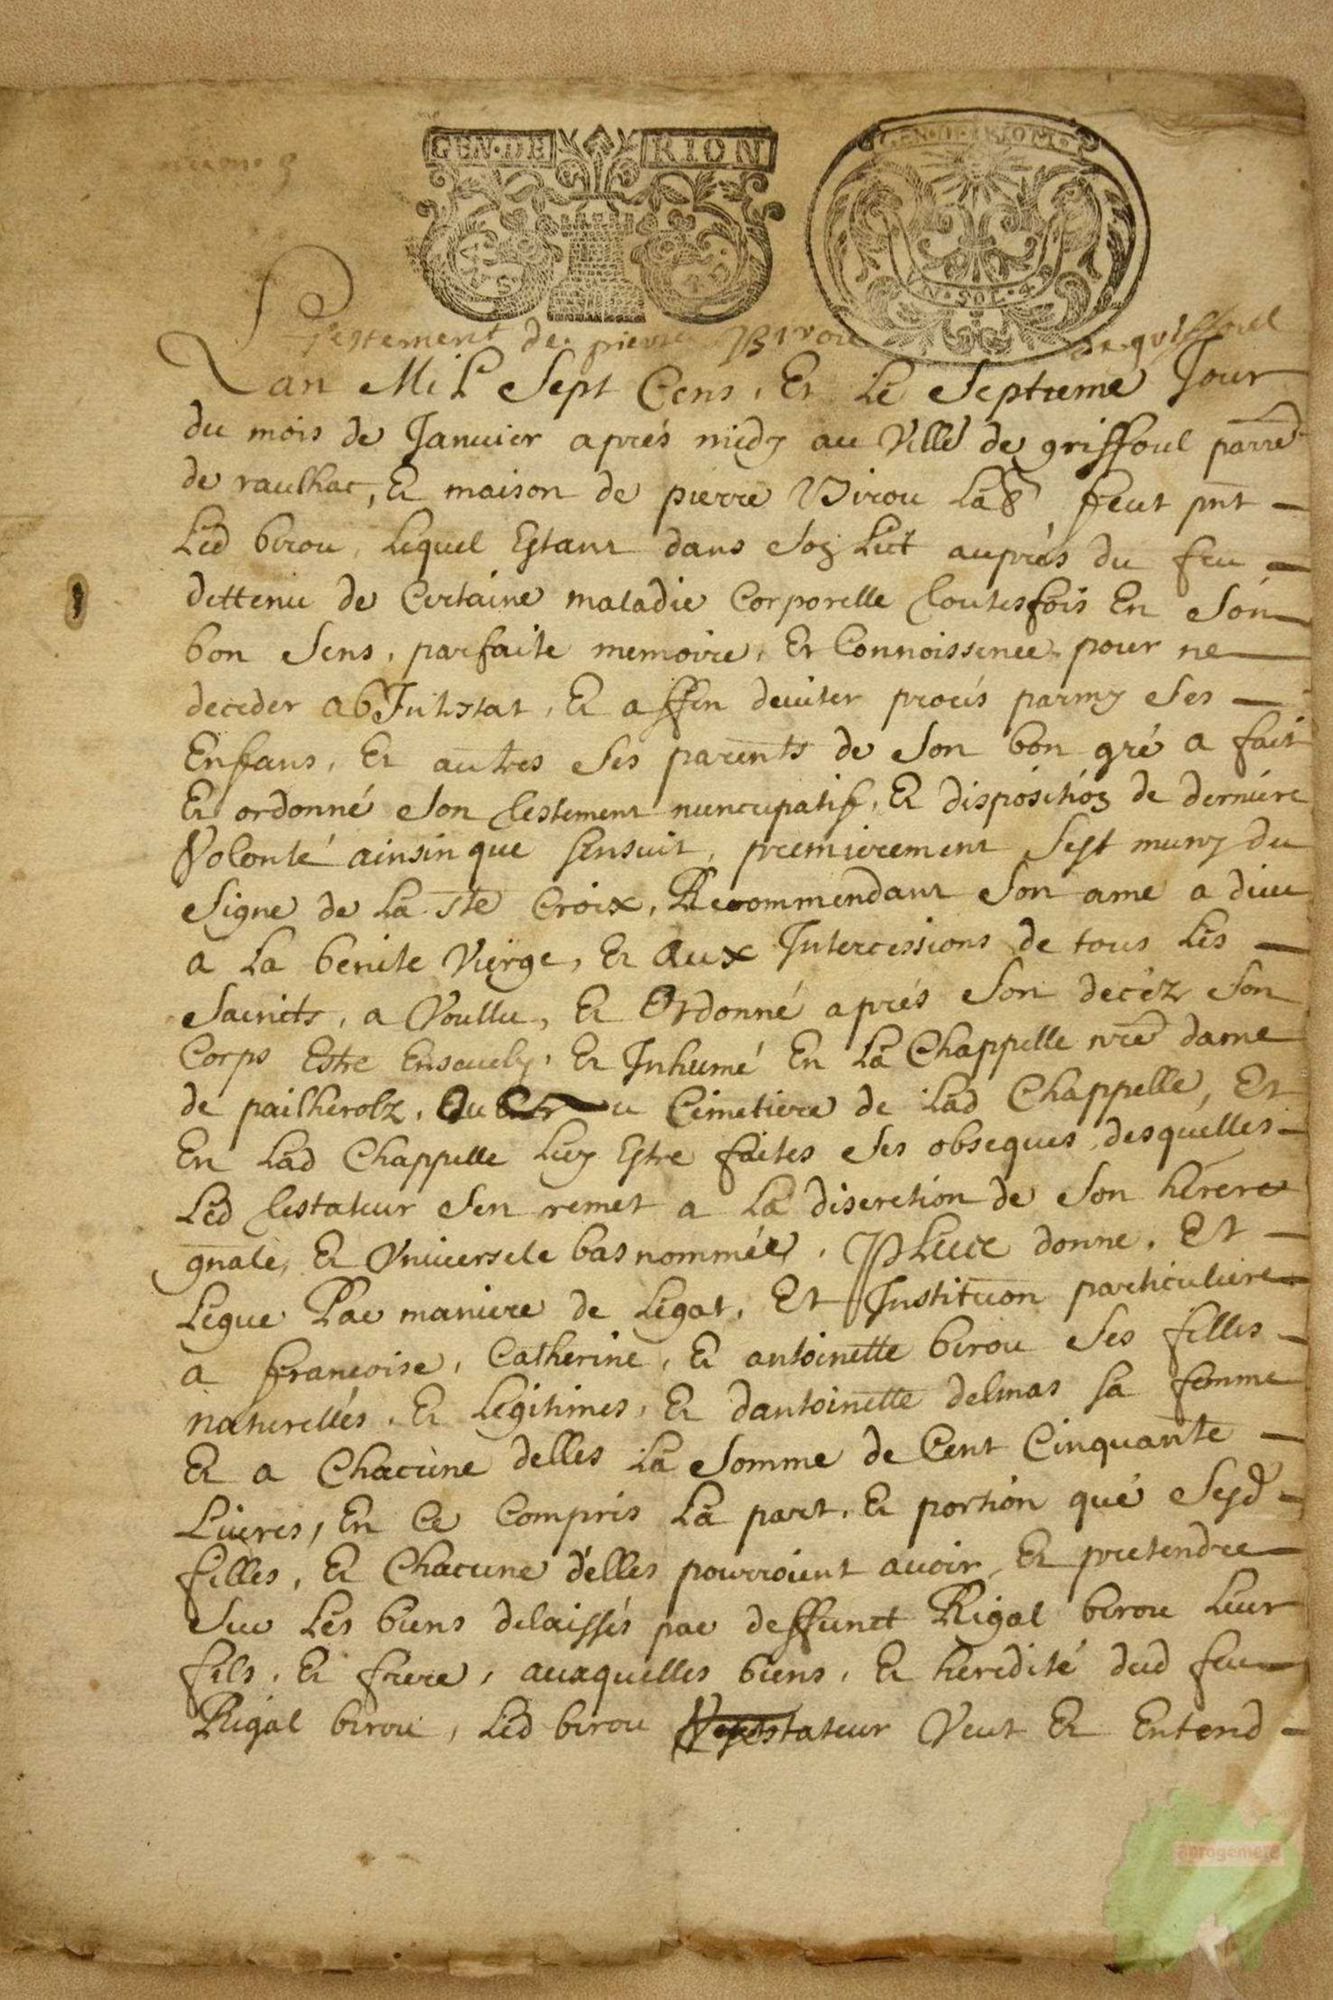 GEN·DE RION
GEN·DE·RIOM·
SOL·4
Testement de pierre Birou de griffoul
Lan Mil Sept Cens, Et Le Septieme Jour
du mois de Janvier aprés midy au Villé de griffoul parre
de raulhac, Et maison de pierre Birou Lab^r, feut pnt
Led birou, Lequel Estant dans Son Lict auprés du feu
dettenu de Certaine maladie Corporelle toutesfois En Son
bon Sens, parfaite memoire, Et Connoissence pour ne
deceder abJntestat, Et affin deviter procés parmy Ses
Enfans, Et autres Ses parents de Son bon gré a fait
Et ordonné Son testement nuncupatif, Et disposition de derniére
Volonté ainsin que sensuit, premierement Sest muny du
Signe de La ste Croix, Recommendant Son ame a dieu
a La benite Vierge, Et Aux Jntercessions de tous Les
Saincts, a Voullu, Et Ordonné aprés Son decéz Son
Corps Estre Ensevely, Et Jnhumé En La Chappelle nre dame
de pailherolz, Ou Cimetiere de Lad Chappelle, Et
En Lad Chappelle Luy Estre faites Ses obseques desquelles
Led testateur Sen remet a La discretion de Son herere
gnale, Et Universele bas nommée, Plus donne, Et
Legue Par maniere de Legat, Et Jnstitution particuliere
a francoise, Catherine, Et antoinette birou Ses filles
naturelles, Et Legitimes, Et dantoinette delmas sa femme
Et a Chacune delles La Somme de Cent Cinquante
Livres, En Ce Compris La part, Et portion que Sesd
filles, Et Chacune d'elles pourroient avoir, Et pretendre
Sur Les biens delaissés par deffunct Rigal birou Leur
fils, Et frere, auxquelles biens, Et heredité dud feu
Rigal birou, Led birou testateur Veut Et Entend
aprogemere